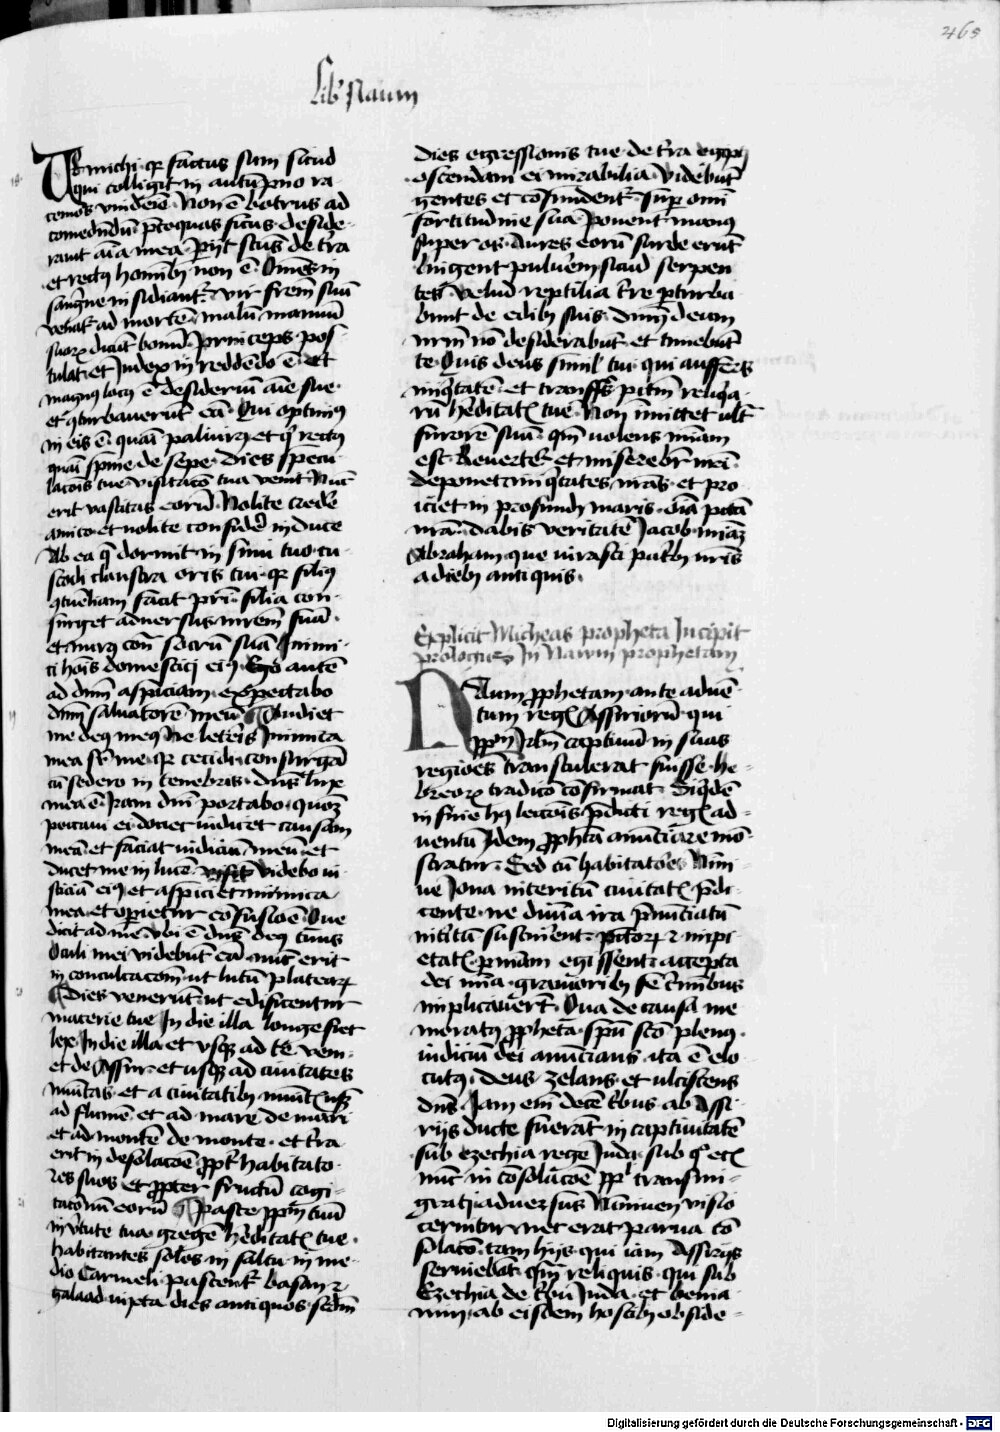 465
Lib' Naum
Ve michi · qr factus sum sicud
qui colligit in autūpno ra
cemos vindemie · Non ē botrus ad
comedendū · p̄coquas ficus deside-
rauit aīa mea · Periit scūs de t̄ra
et rectus hominibus non ē · Om̄s in
sangwine insidiantur · vir frēm suū
venatur ad mortē · malū manuum
suarum dicunt bonū · princeps pos-
tulat et Judex in reddēdo ē · Et
magnus locutus ē desideriū aīe sue ·
et conturbauerūt eā · Qui optimus
in eis ē quasi paliurus et qui rectus
quasi spine de sepe · Dies specu
lacōis tue visitacō tua venit · Nūc
erit vastitas eorū · Nolite credere
amico et nolite confidere in duce
Ab ea que dormit in sinu tuo cu-
stodi claustra oris tui · qr filius
contumeliam facit pr̄i · filia con-
surget aduersus mr̄em suā ·
et nurus cont̄ socrū suā · Inimi-
ci hoīs domestici eius · Ego autē
ad dn̄m aspiciam · expectabo
dn̄m saluatorē meū · Audiet
me deus meus · Ne leteris Inimica
mea sr̄ me · qr cecidi · consurgā
cū sedero in tenebris · dn̄s lux
mea ē · Iram dn̄i portabo · quoniam
peccaui ei · donec iudicet causam
meā et faciat iudiciū meū · et
ducet me in lucē · videbo iu
sticiā eius · et aspiciet inimica
mea · et operietur confusiōe · Que
dicit ad me · vbi ē dn̄s deus tuus
Oculi mei videbūt eā · nūc erit
in conculcacōm ut lutū platearum
Dies venerūt ut edificentur
macerie tue · In die illa longe fiet
lex · In die illa et vsque ad te veni-
et de Assur · et usque ad ciuitates
munitas · et a ciuitatibus munitis usque
ad flumē · et ad mare de mari
et ad montē de monte · et t̄ra
erit in desolacōe · propter habitato-
res suos et propter fructū cogi-
tacōnū eorū · Pasce ppl̄m tuū
in v̄tute tua · gregē hereditatis tue ·
habitantes solos in saltu · in me-
dio Carmeli · pascentur basan et
galaad iuxta dies antiquos · secundum
dies egressionis tue de t̄ra egypti
ostendam ei mirabilia · Videbunt
gentes et confundentur · super omni
fortitudine sua · ponent manus
super os · Aures eorū surde erūt
lingent puluerem sicud serpen
tes · velud reptilia t̄re perturba
bunt de edibus suis · dn̄m deum
nr̄m nō desiderabūt · et timebūt
te · Quis deus similis tui · qui auffers
iniquitatē et transfers peccatum reliquia-
rū hereditatis tue · Non inmittet ultra
furorē suū · qm̄ uolens mīam
est · Reuertetur et miserebitur nr̄i ·
deponet iniquitates nr̄as · et pro-
iciet in profundum maris · oīa pccā
nr̄a · dabis veritatē Jacob · mīaz
Abraham · que iurasti patribus nr̄is
a diebus antiquis ·
Explicit Micheas propheta Incipit
prologus In Nawm prophetam
Naum prophetam · ante aduē-
tum regis Assiriorū · qui
ppl̄m Isrl̄ captiuū in suas
regiones transtulerat fuisse · he-
breorum tradicō confirmat · Siquidem
in fine huius lectionis predicti regis ad-
uentū Idem propheta anunciare mon-
stratur · Sed cū habitatores Nini-
ue Jona interitū ciuitatis predi-
cente · ne diuina ira prenunciatū
interitū susciperent · peccatorum et inpi
etatis penitenciam egissent · accepta
dei mīa · grauioribus se criminibus
implicauerunt · Qua de causa me
moratus propheta · spū scō plenus ·
iudiciū dei anuncians ita ē elo
cutus · deus zelans et ulciscens
dn̄s · Jam enī decē tribus ab Assi-
riis ducte fuerāt in captiuitatē
sub Ezechia rege Juda · sub quo etiam
nunc in consolacōe populi transmi-
grati aduersus Niniuen visio
cernitur · nec erat parua con-
solacō · tam hiis qui iam Assiriis
seruiebāt · quam reliquis · qui sub
Ezechia de tribu Juda · et Benia-
min · ab eisdem hostibus obside-
Digitalisierung gefördert durch die Deutsche Forschungsgemeinschaft - DFG